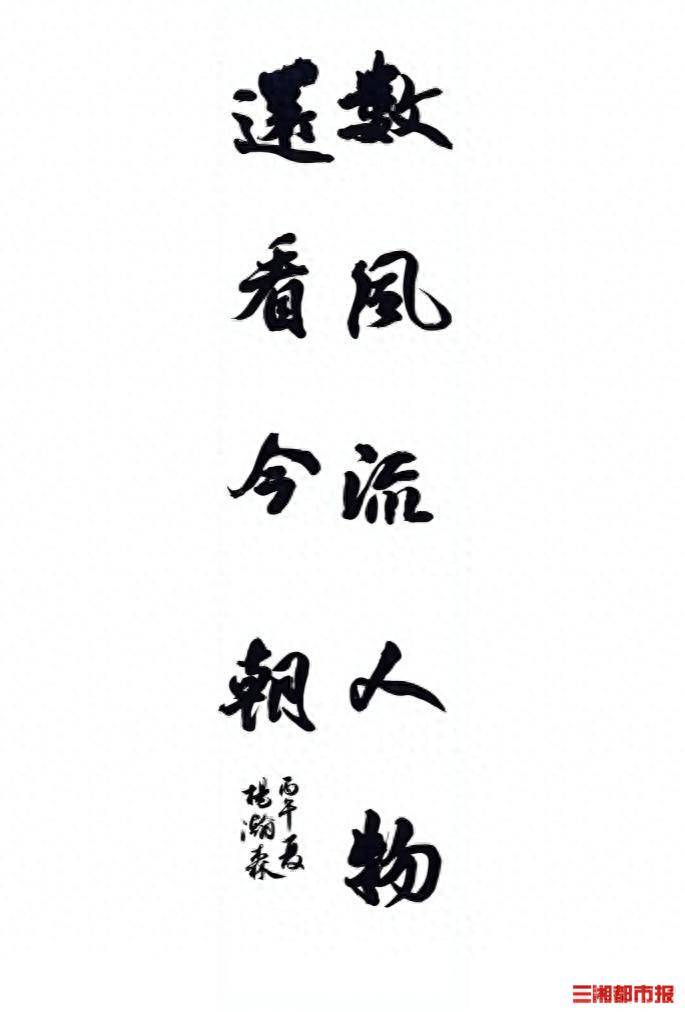 數風流人物
還看今朝
丙午夏
楊瀚森
三湘都市报